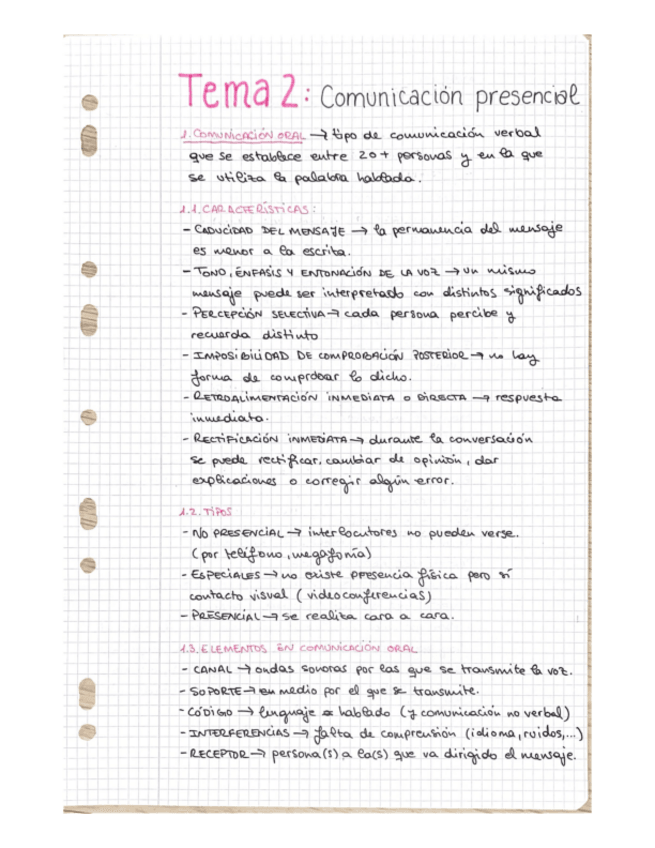 Tema 2: Comunicación presencial
1. COMUNICACIÓN ORAL → tipo de comunicación verbal
que se establece entre 2 o + personas y en la que
se utiliza la palabra hablada.
1.1. CARACTERÍSTICAS:
- CADUCIDAD DEL MENSAJE → la permanencia del mensaje
es menor a la escrita.
- TONO, ÉNFASIS Y ENTONACIÓN DE LA VOZ → un mismo
mensaje puede ser interpretado con distintos significados
- PERCEPCIÓN SELECTIVA → cada persona percibe y
recuerda distinto
- IMPOSIBILIDAD DE COMPROBACIÓN POSTERIOR → no hay
forma de comprobar lo dicho.
- RETROALIMENTACIÓN INMEDIATA O DIRECTA → respuesta
inmediata.
- RECTIFICACIÓN INMEDIATA → durante la conversación
se puede rectificar, cambiar de opinión, dar
explicaciones o corregir algún error.
1.2. TIPOS
- NO PRESENCIAL → interlocutores no pueden verse.
(por teléfono, megafonía)
- ESPECIALES → no existe presencia física pero sí
contacto visual (videoconferencias)
- PRESENCIAL → se realiza cara a cara.
1.3. ELEMENTOS EN COMUNICACIÓN ORAL
- CANAL → ondas sonoras por las que se transmite la voz.
- SOPORTE → en medio por el que se transmite.
- CÓDIGO → lenguaje hablado (y comunicación no verbal)
- INTERFERENCIAS → falta de comprensión (idioma, ruidos,...)
- RECEPTOR → persona(s) a la(s) que va dirigido el mensaje.